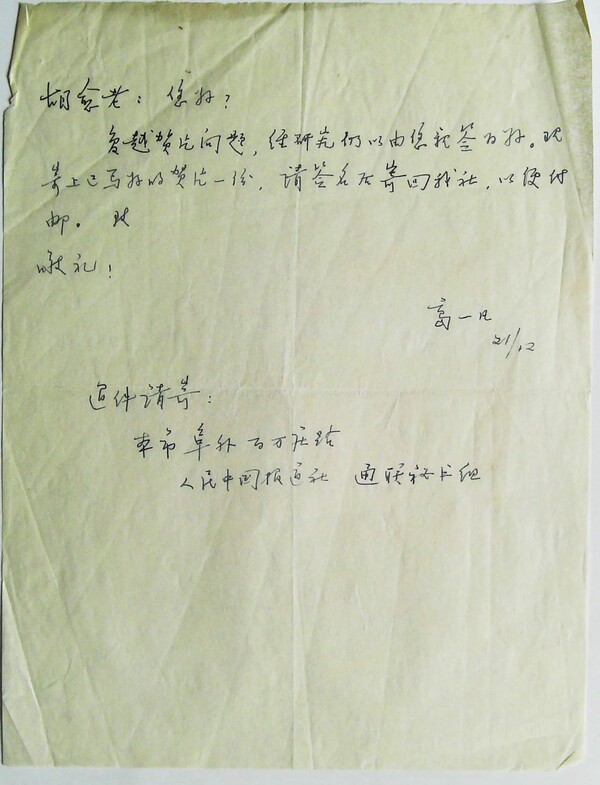 胡愈老：您好？
复越贺片问题，经研究仍以由您亲签为好。现
寄上已写好的贺片一份，请签名后寄回我社，以便付
邮。 致
敬礼！
高一凡
21/12
回件请寄：
本市阜外百万庄路
人民中国报道社 通联秘书组